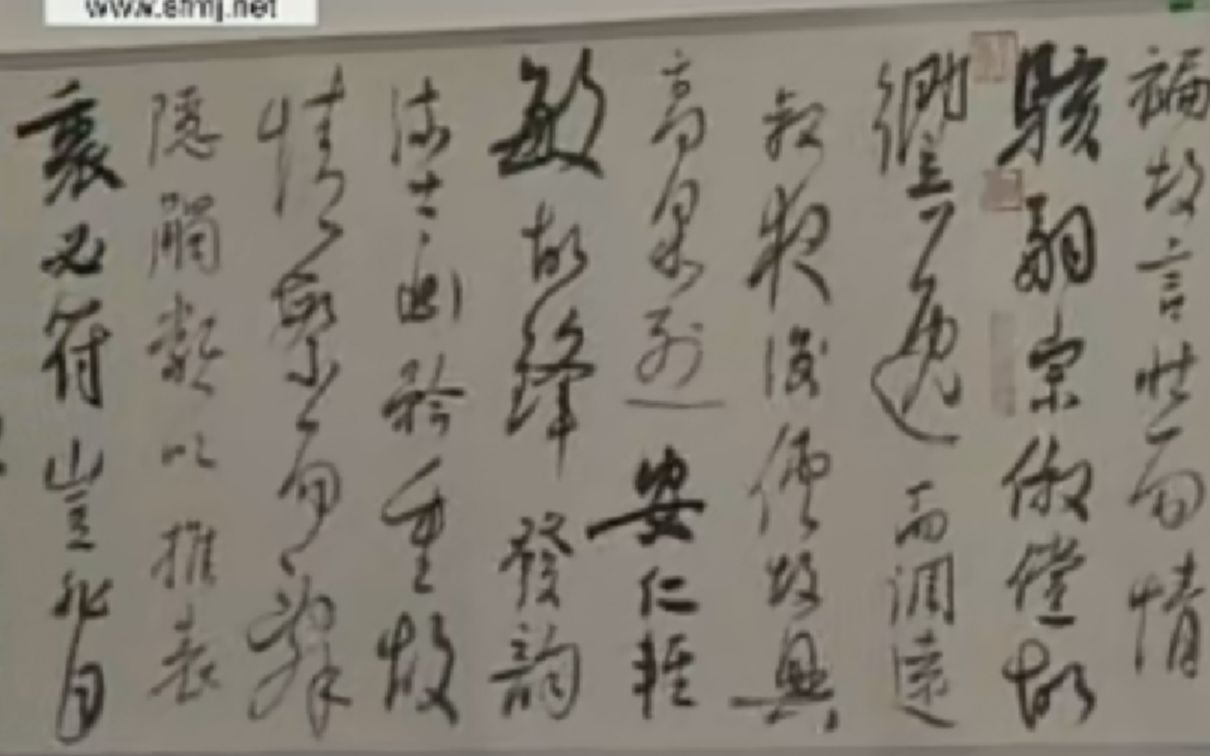 www.sfmj.net
褊故言壯而情
駭嗣宗俶儻故
響逸而調遠
叔夜俊俠故興
高而采烈安仁輕
敏故鋒發韻
流士衡矜重故
情繁而辭
隱觸類以推表
裏必符豈非自